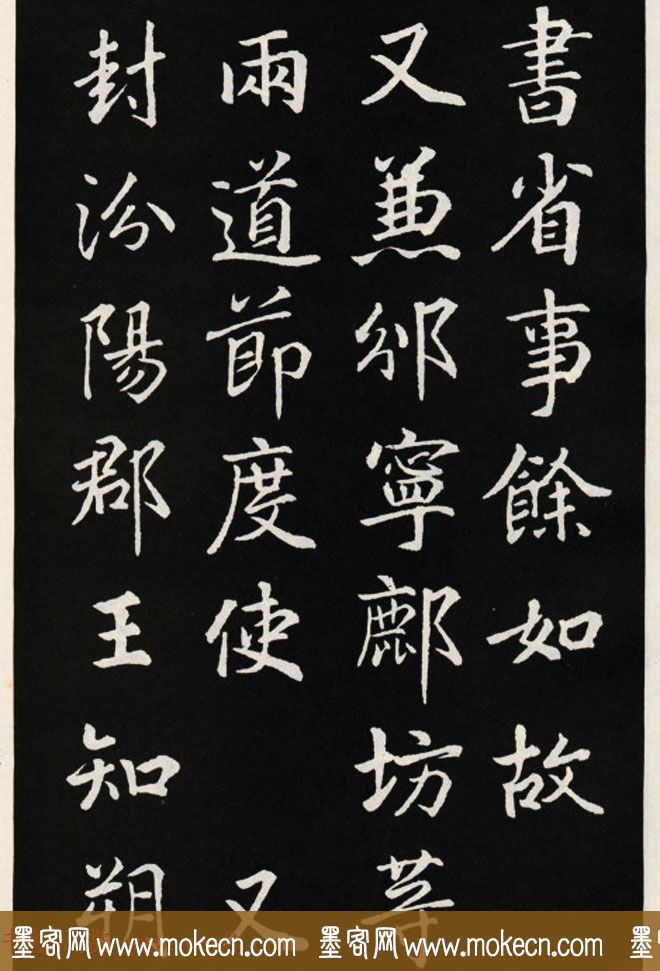 書省事餘如故
又兼邠寧鄜坊等
兩道節度使 又
封汾陽郡王知朔
墨客网 www.mokecn.com 墨客网 www.mokecn.com